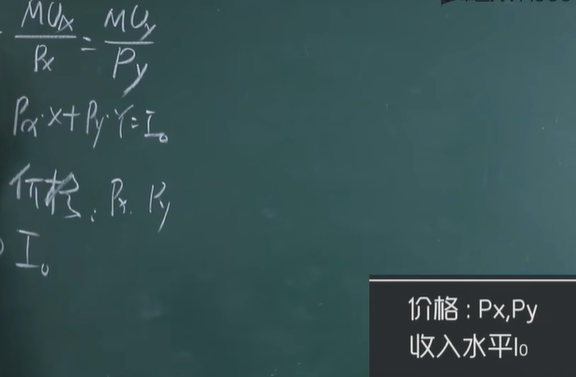 MUx/Px = MUy/Py
Px·X+Py·Y=I₀
价格: Px. Py
I₀
价格：Px,Py
收入水平I₀